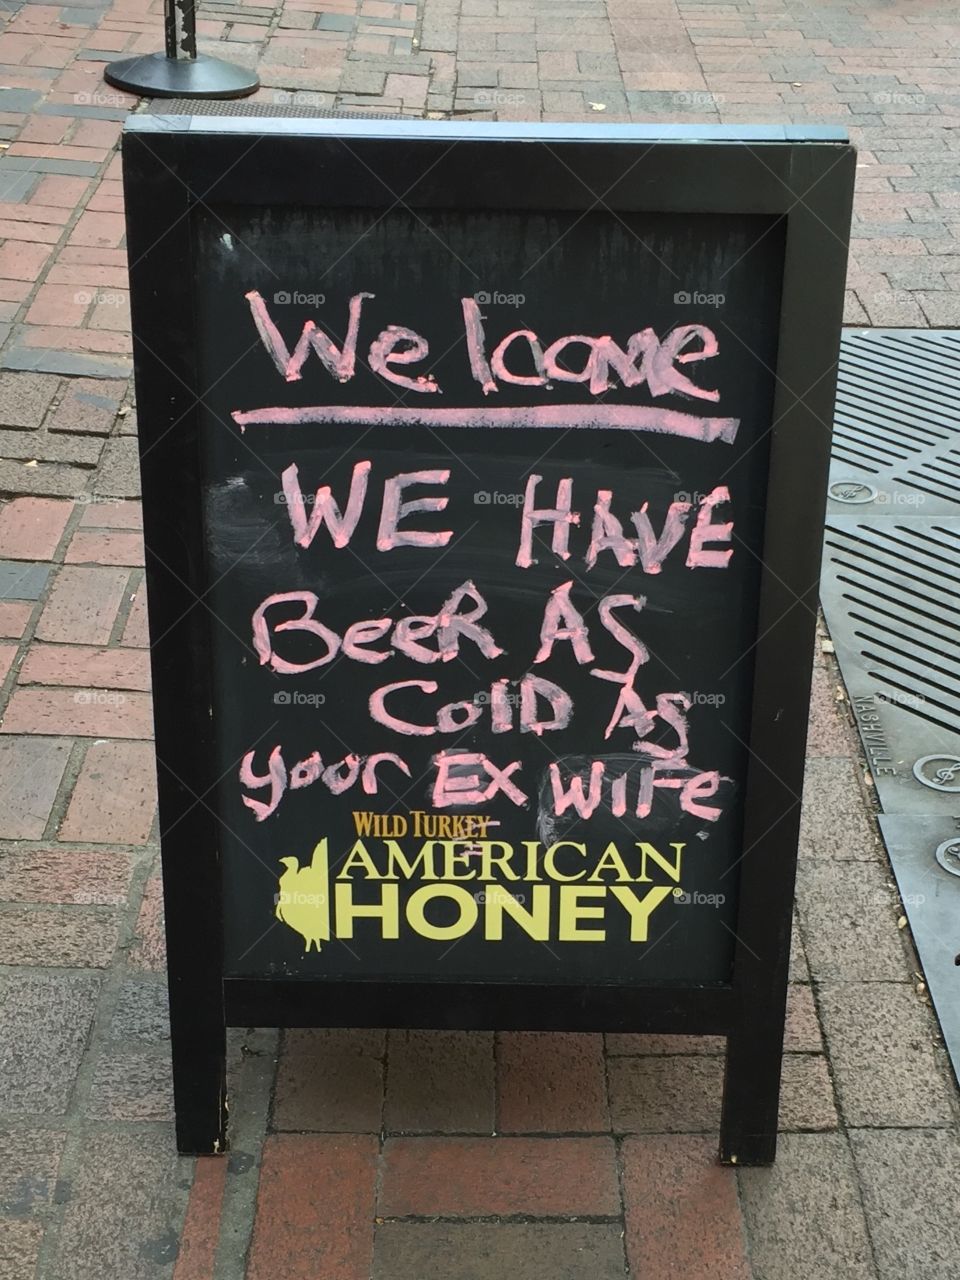 Welcome
WE HAVE
BeeR AS
ColD AS
your Ex WiFe
WILD TURKEY
AMERICAN
HONEY®
NASHVILLE
foap